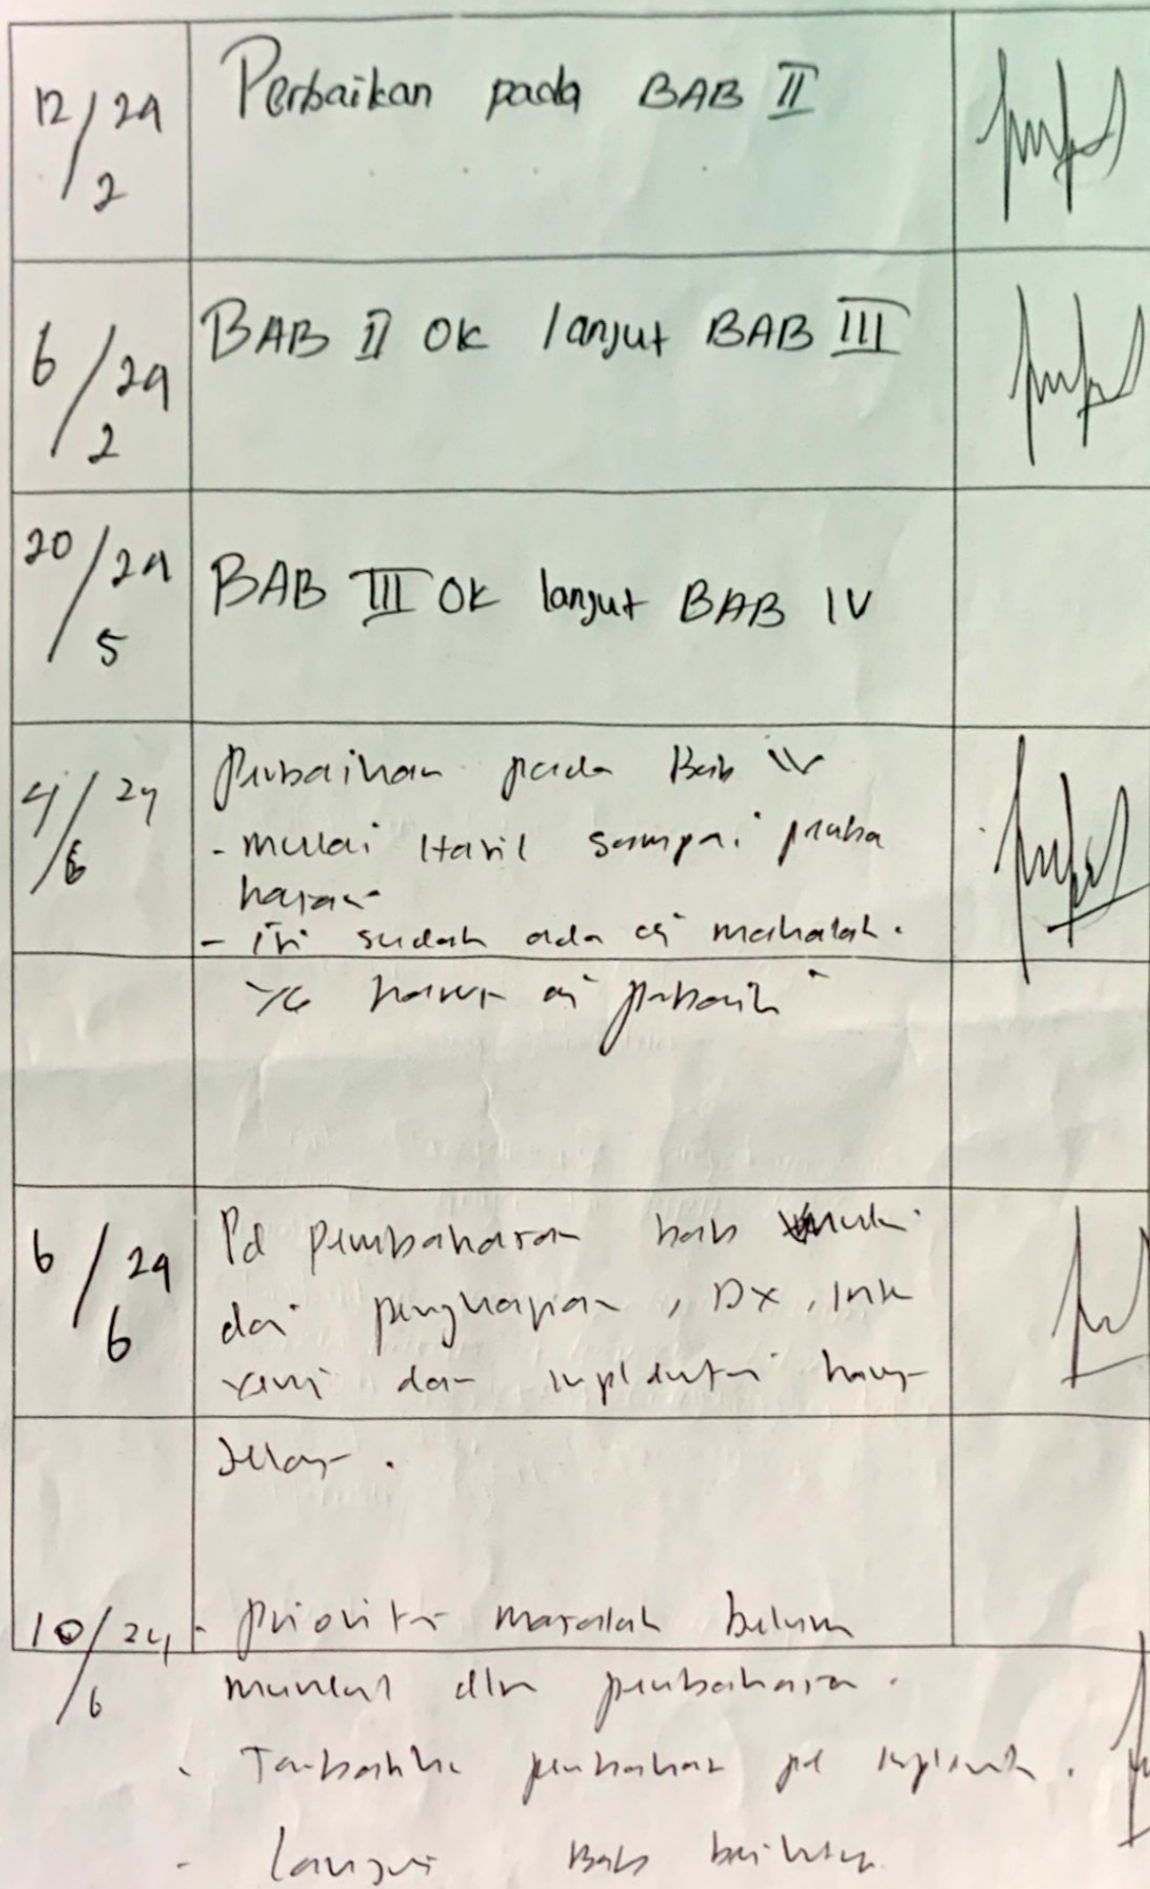 12/24
2
Perbaikan pada BAB II
6/24
2
BAB II OK lanjut BAB III
20/24
5
BAB III OK lanjut BAB IV
4/24
6
Perbaikan pada Bab IV
- mulai Hasil sampai pemba
hasan
- Ini sudah ada di makalah.
harus di perbaiki
6/24
6
Pd Pembahasan bab
dari pengkajian, Dx, Inter
vensi dan implentasi harus
Jelas.
10/24
6
- prioritas masalah belum
muncul dlm pembahasan.
- Tambahkan pembahasan pd implemt.
- Lanjut Bab berikutnya